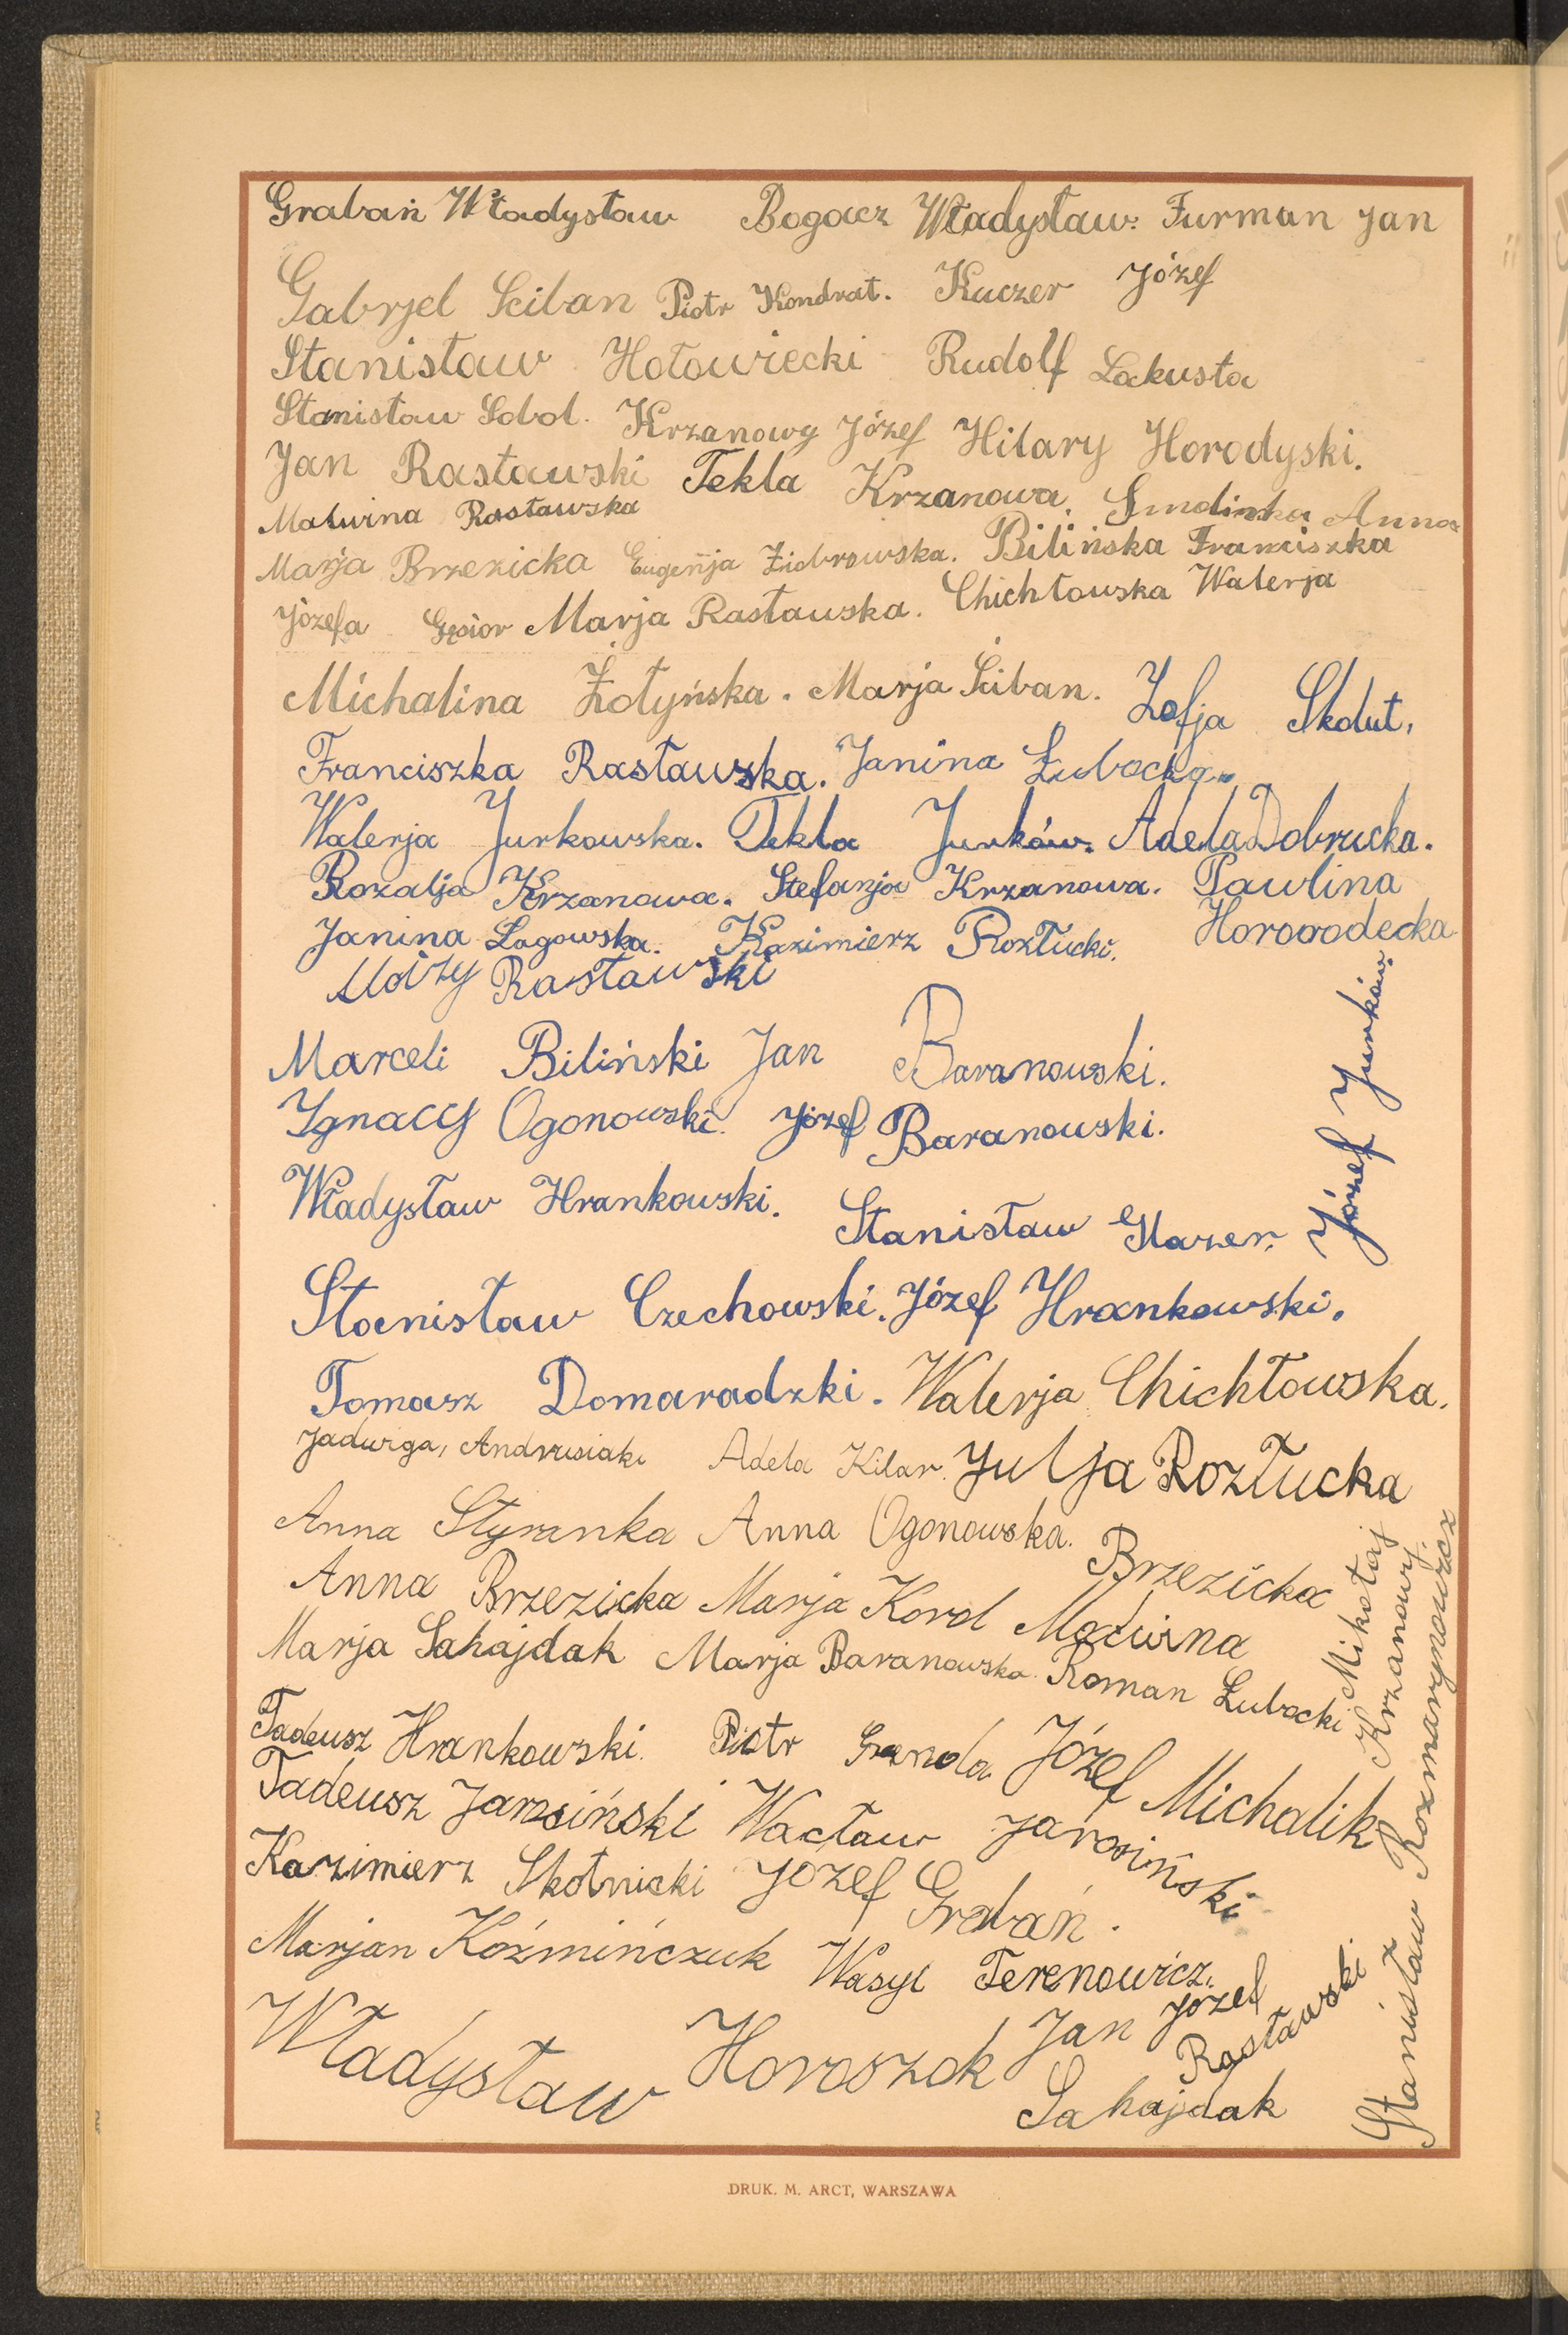 Grabań Władysław Bogacz Władysław. Furman Jan
Gabrjel Sciban Piotr Kondrat. Kuczer Józef
Stanisław Hołowiecki Rudolf Lackusta
Stanisław Sobol. Krzanowy Józef Hilary Horodyski.
Jan Rasławski Tekla Krzanowa. Smolinska Anna
Malwina Rasławska
Marja Brzezicka Eugenja Ziobrowska. Bilińska Franciszka
Józefa Gąsior Marja Rasławska. Chichłowska Walerja
Michalina Żołyńska. Marja Sciban. Zofja Skolut.
Franciszka Rasławska. Janina Łubocka.
Walerja Jurkowska. Tekla Junków. Adela Dobrucka.
Rozalja Krzanowa. Stefanja Krzanowa. Paulina
Horowodecka
Janina Łagowska. Kazimierz Rozłucki.
Alojzy Rasławski
Marceli Biliński Jan Baranowski.
Ygnacy Ogonowski. Józef Baranowski.
Władysław Hrankowski. Stanisław Glazer.
Józef Junków.
Stanisław Czechowski. Józef Hrankowski.
Tomasz Domaradzki. Walerja Chichłowska.
Jadwiga, Andrusiak Adela Kilar. Julja Rozłucka
Anna Styranka Anna Ogonowska. Brzezicka
Anna Brzezicka Marja Korol Malwina
Marja Sahajdak Marja Baranowska Roman Łubocki
Mikołaj
Krzanowy.
Tadeusz Hrankowski. Piotr Granda Józef Michalik
Tadeusz Jarosiński Wacław Jarosiński
Kazimierz Skotnicki Józef Grabań.
Marjan Koźmińczuk Wasyl Terenowicz.
Władysław Horoszok Jan Józef
Rasławski
Sahajdak
Stanisław Rozmarynowicz
DRUK. M. ARCT, WARSZAWA